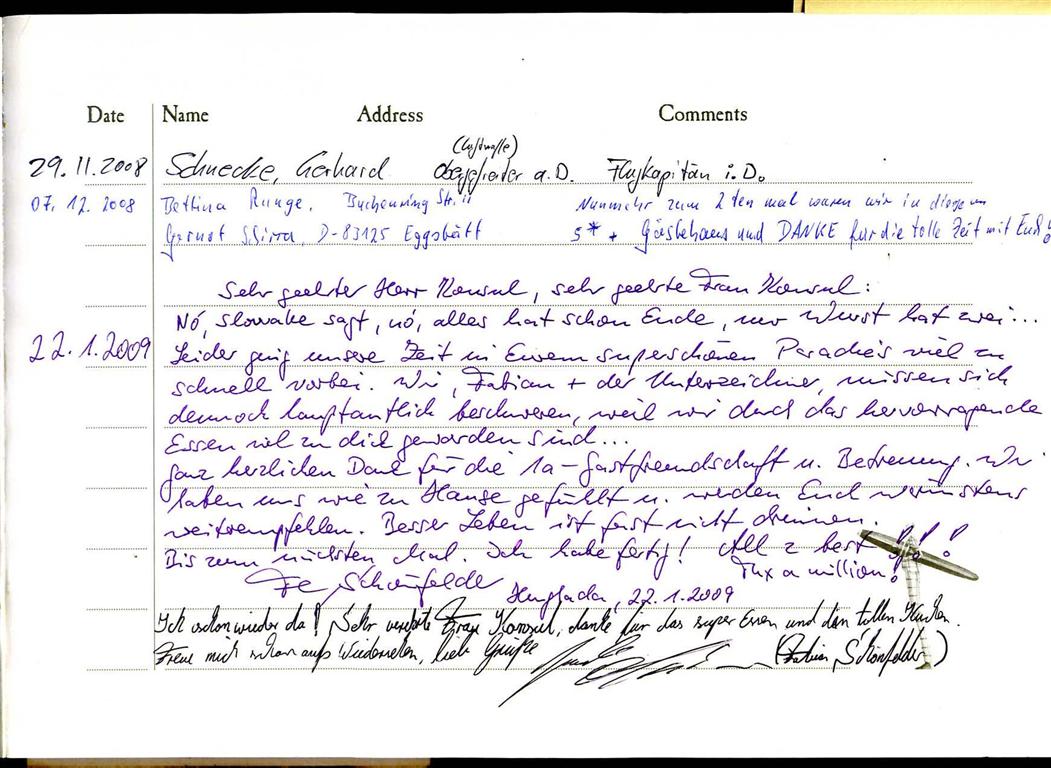 Date Name Address Comments
(Luftwaffe)
29.11.2008 Schnecke, Gerhard Obergefreiter a.D. Flugkapitän i.D.
07.12.2008 Bettina Runge, Buchenring Str. 11 Nunmehr zum 2ten mal waren wir in diesem
Gernot D-83125 Eggstätt 5* + Gästehaus und DANKE für die tolle Zeit mit Euch!
Sehr geehrter Herr Konsul, sehr geehrte Frau Konsul:
Nó, Slowake sagt, nó, alles hat schon Ende, nur Wurst hat zwei...
22.1.2009 Leider ging unsere Zeit in Eurem superschönen Paradies viel zu
schnell vorbei. Wir, Fabian + der Unterzeichner, müssen sich
dennoch hauptamtlich beschweren, weil wir durch das hervorragende
Essen viel zu dick geworden sind...
Ganz herzlichen Dank für die 1a-Gastfreundschaft u. Betreuung. Wir
haben uns wie zu Hause gefühlt u. werden Euch wärmstens
weiterempfehlen. Besser Leben ist fast nicht drinnen.
Bis zum nächsten Mal. Ich habe fertig! All z best !!!
Thx a million!
Schönfelder Hurghada, 22.1.2009
Ich schon wieder da! Sehr verehrte Frau Konsul, danke für das super Essen und den tollen
Freue mich schon aufs Wiedersehen, liebe Grüße (Fabian Schönfelder)